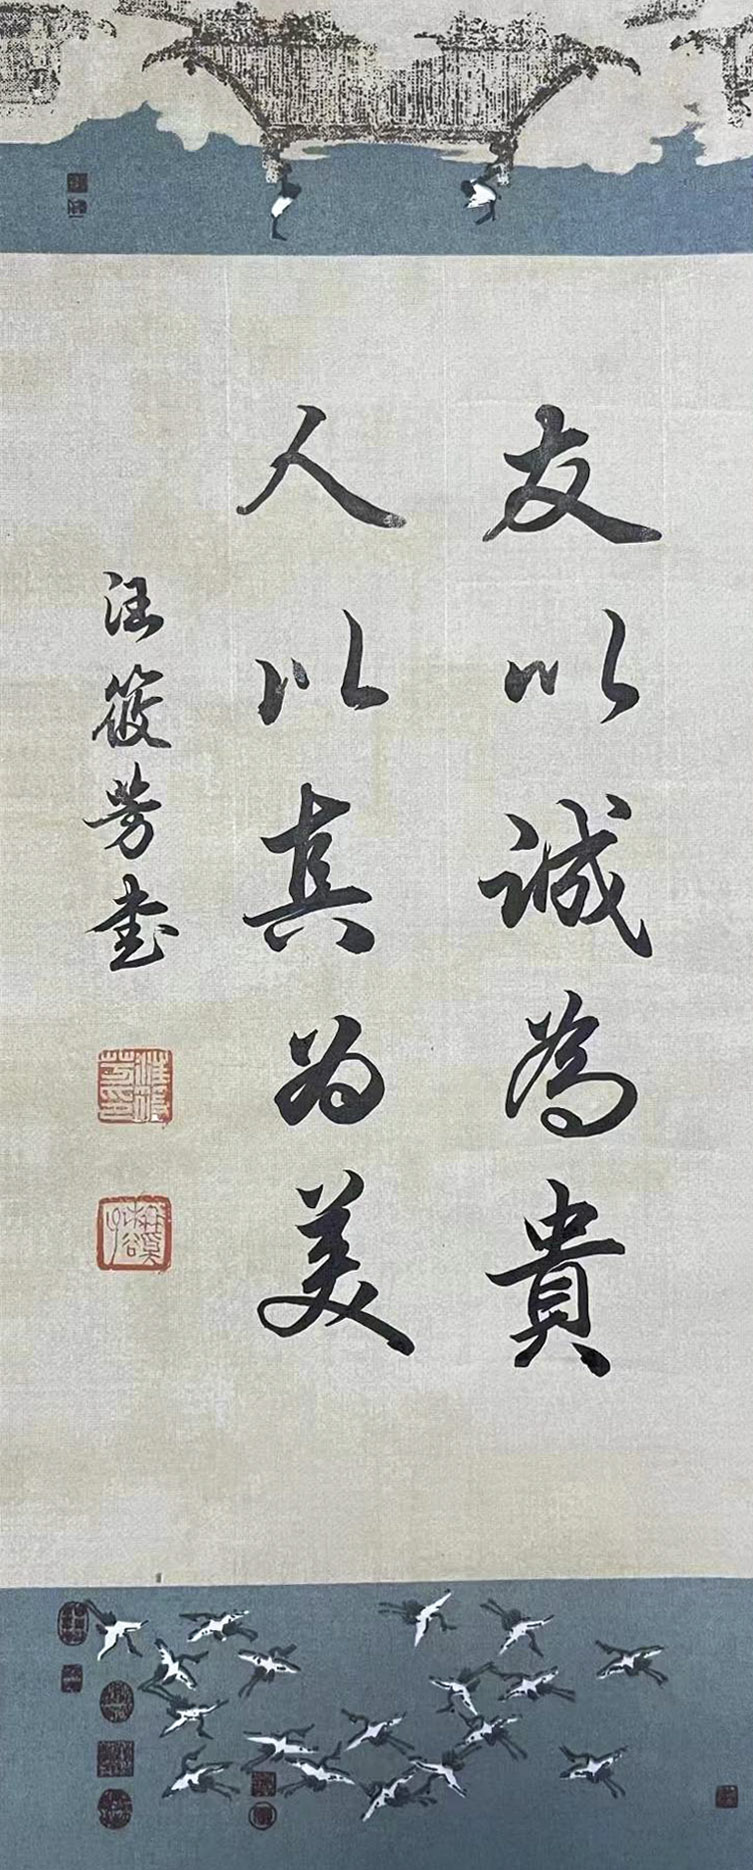 友以誠為貴
人以真为美
汪筱芳書